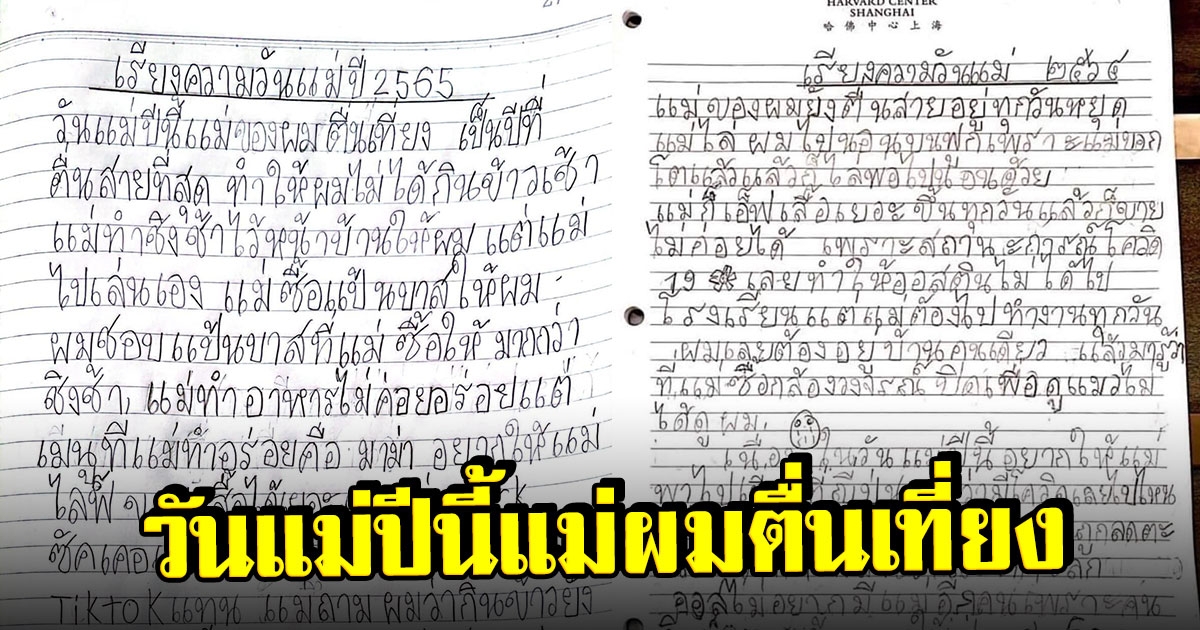 เรียงความวันแม่ปี 2565
วันแม่ปีนี้แม่ของผมตื่นเที่ยง เป็นปีที่
ตื่นสายที่สุด ทำให้ผมไม่ได้กินข้าวเช้า
แม่ทำชิงช้าไว้หน้าบ้านให้ผม แต่แม่
ไปเล่นเอง แม่ซื้อแป้นบาสให้ผม
ผมชอบแป้นบาสที่แม่ ซื้อให้ มากกว่า
ชิงช้า, แม่ทำอาหารไม่ค่อยอร่อยแต่
เมนูที่แม่ทำอร่อยคือ มาม่า อยากให้แม่
ไลฟ์
ซัคเคอ
Tiktok แทน แม่ถามผมว่ากินข้าวยัง
HARVARD CENTER
SHANGHAI
哈佛中心上海
เรียงความวันแม่ ๒๕๖๔
แม่ของผมยังตื่นสายอยู่ทุกวันหยุด
แม่ไล่ผมไปนอนบนฟูกเพราะแม่บอก
โตแล้วแล้วก็ไล่พ่อไปนอนด้วย
แม่ก็เอ็ฟเสื้อเยอะขึ้นทุกวันแล้วก็ขาย
ไม่ค่อยได้ เพราะสถานะการณ์โควิด
19 เลยทำให้ออสตินไม่ได้ไป
โรงเรียนแต่แม่ต้องไปทำงานทุกวัน
ผมเลยต้องอยู่บ้านคนเดียว แล้วมารู้ว่า
ที่แม่ซื้อกล้องวงจรณ์ปิดเพื่อดูแมวไม่
ได้ดูผม.
เนื่องในวันแม่ปีนี้อยากให้แม่
พาไป เลยไปไหน
ถูกลดตะ
ออสไม่อยากมีแม่อีกคนเพราะคน
วันแม่ปีนี้แม่ผมตื่นเที่ยง